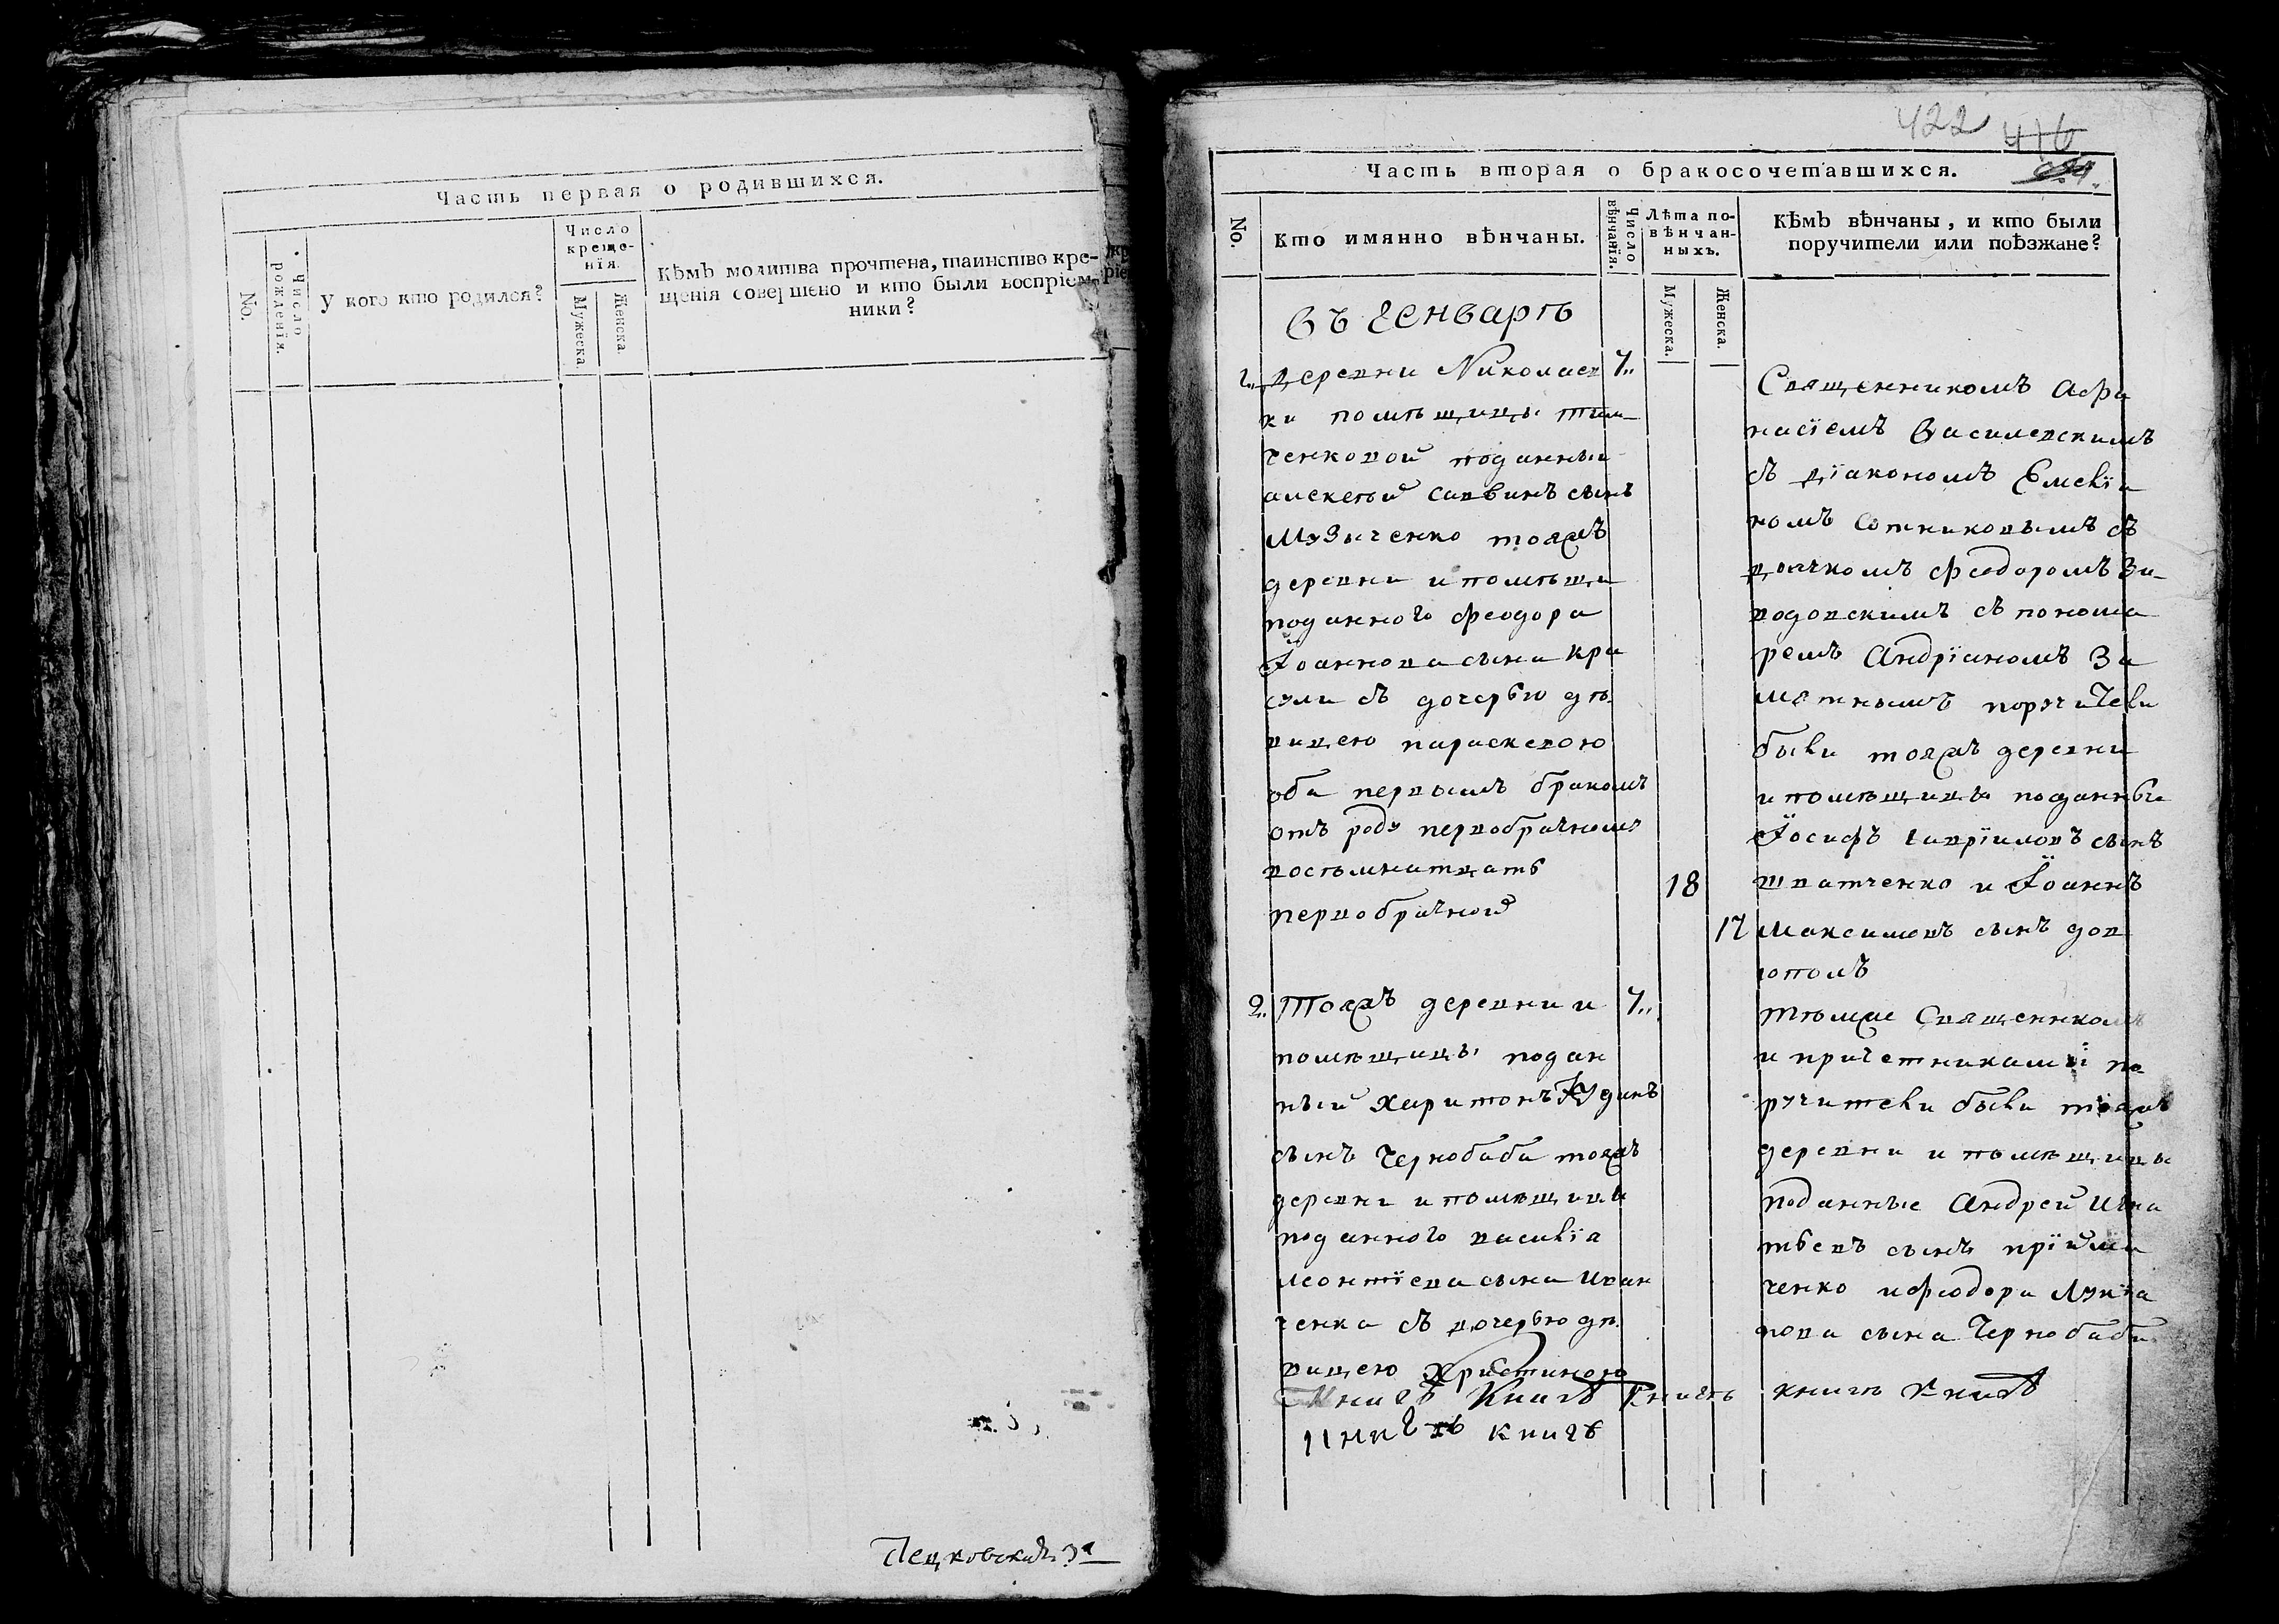 Часть первая о родившихся.
No.
Число рожденїя.
У кого кто родился?
Число
креще-
нїя.
Мужеска
Женска.
Кѣмъ молитва прочтена, таинство кре-
щенїя совершено и кто были воспрїем-
ники?
422
416
Часть вторая о бракосочетавшихся.
No.
Кто имянно вѣнчаны.
Число вѣнчанїя.
Лѣта по-
вѣнчан-
ныхъ.
Мужеска.
Женска.
Кѣмъ вѣнчаны, и кто были
поручители или поѣзжане?
Въ Генварѣ
1.. деревни Николаев 7..
ки помѣщицы Тим-
ченковой поданный
алексѣй саввинъ сынъ
Музыченко тояжъ
деревни и помѣщи
поданного феодора
Їоаннова сына кра
сули съ дочерью дѣ
вицею параскевою
оба первымъ бракомъ
отъ роду первобрачному
восѣмнатцать
18
первобрачной
17
Священникомъ Афа
насїемъ Василевскимъ
съ дїакономъ Емелїа
номъ Сотниковымъ съ
дьячкомъ феодоромъ За-
водовскимъ съ понома
ремъ Андрїаномъ За
мятнымъ поручители
были тояжъ деревни
и помѣщицы поданные
Їосифъ гаврїиловъ сынъ
шватченко и Їоаннъ
максимовъ сынъ дов
2.. Тояжъ деревни и 7..
помѣщицы подан
ный харитонъ
сынъ Чернобаба тояжъ
деревни и помѣщицы
поданного василїа
леонтїева сына Иван
ченка съ дочерью дѣ
вицею Христиною
Тѣмже Священникомъ
и причетниками по
ручители были тояжъ
деревни и помѣщицы
поданные Андрей Игна
тьевъ сынъ прїйма
ченко и феодора Лукїа
нова сына Чернобаба
Книгѣ Книгѣ Книгѣ книгѣ книгѣ
книгѣ